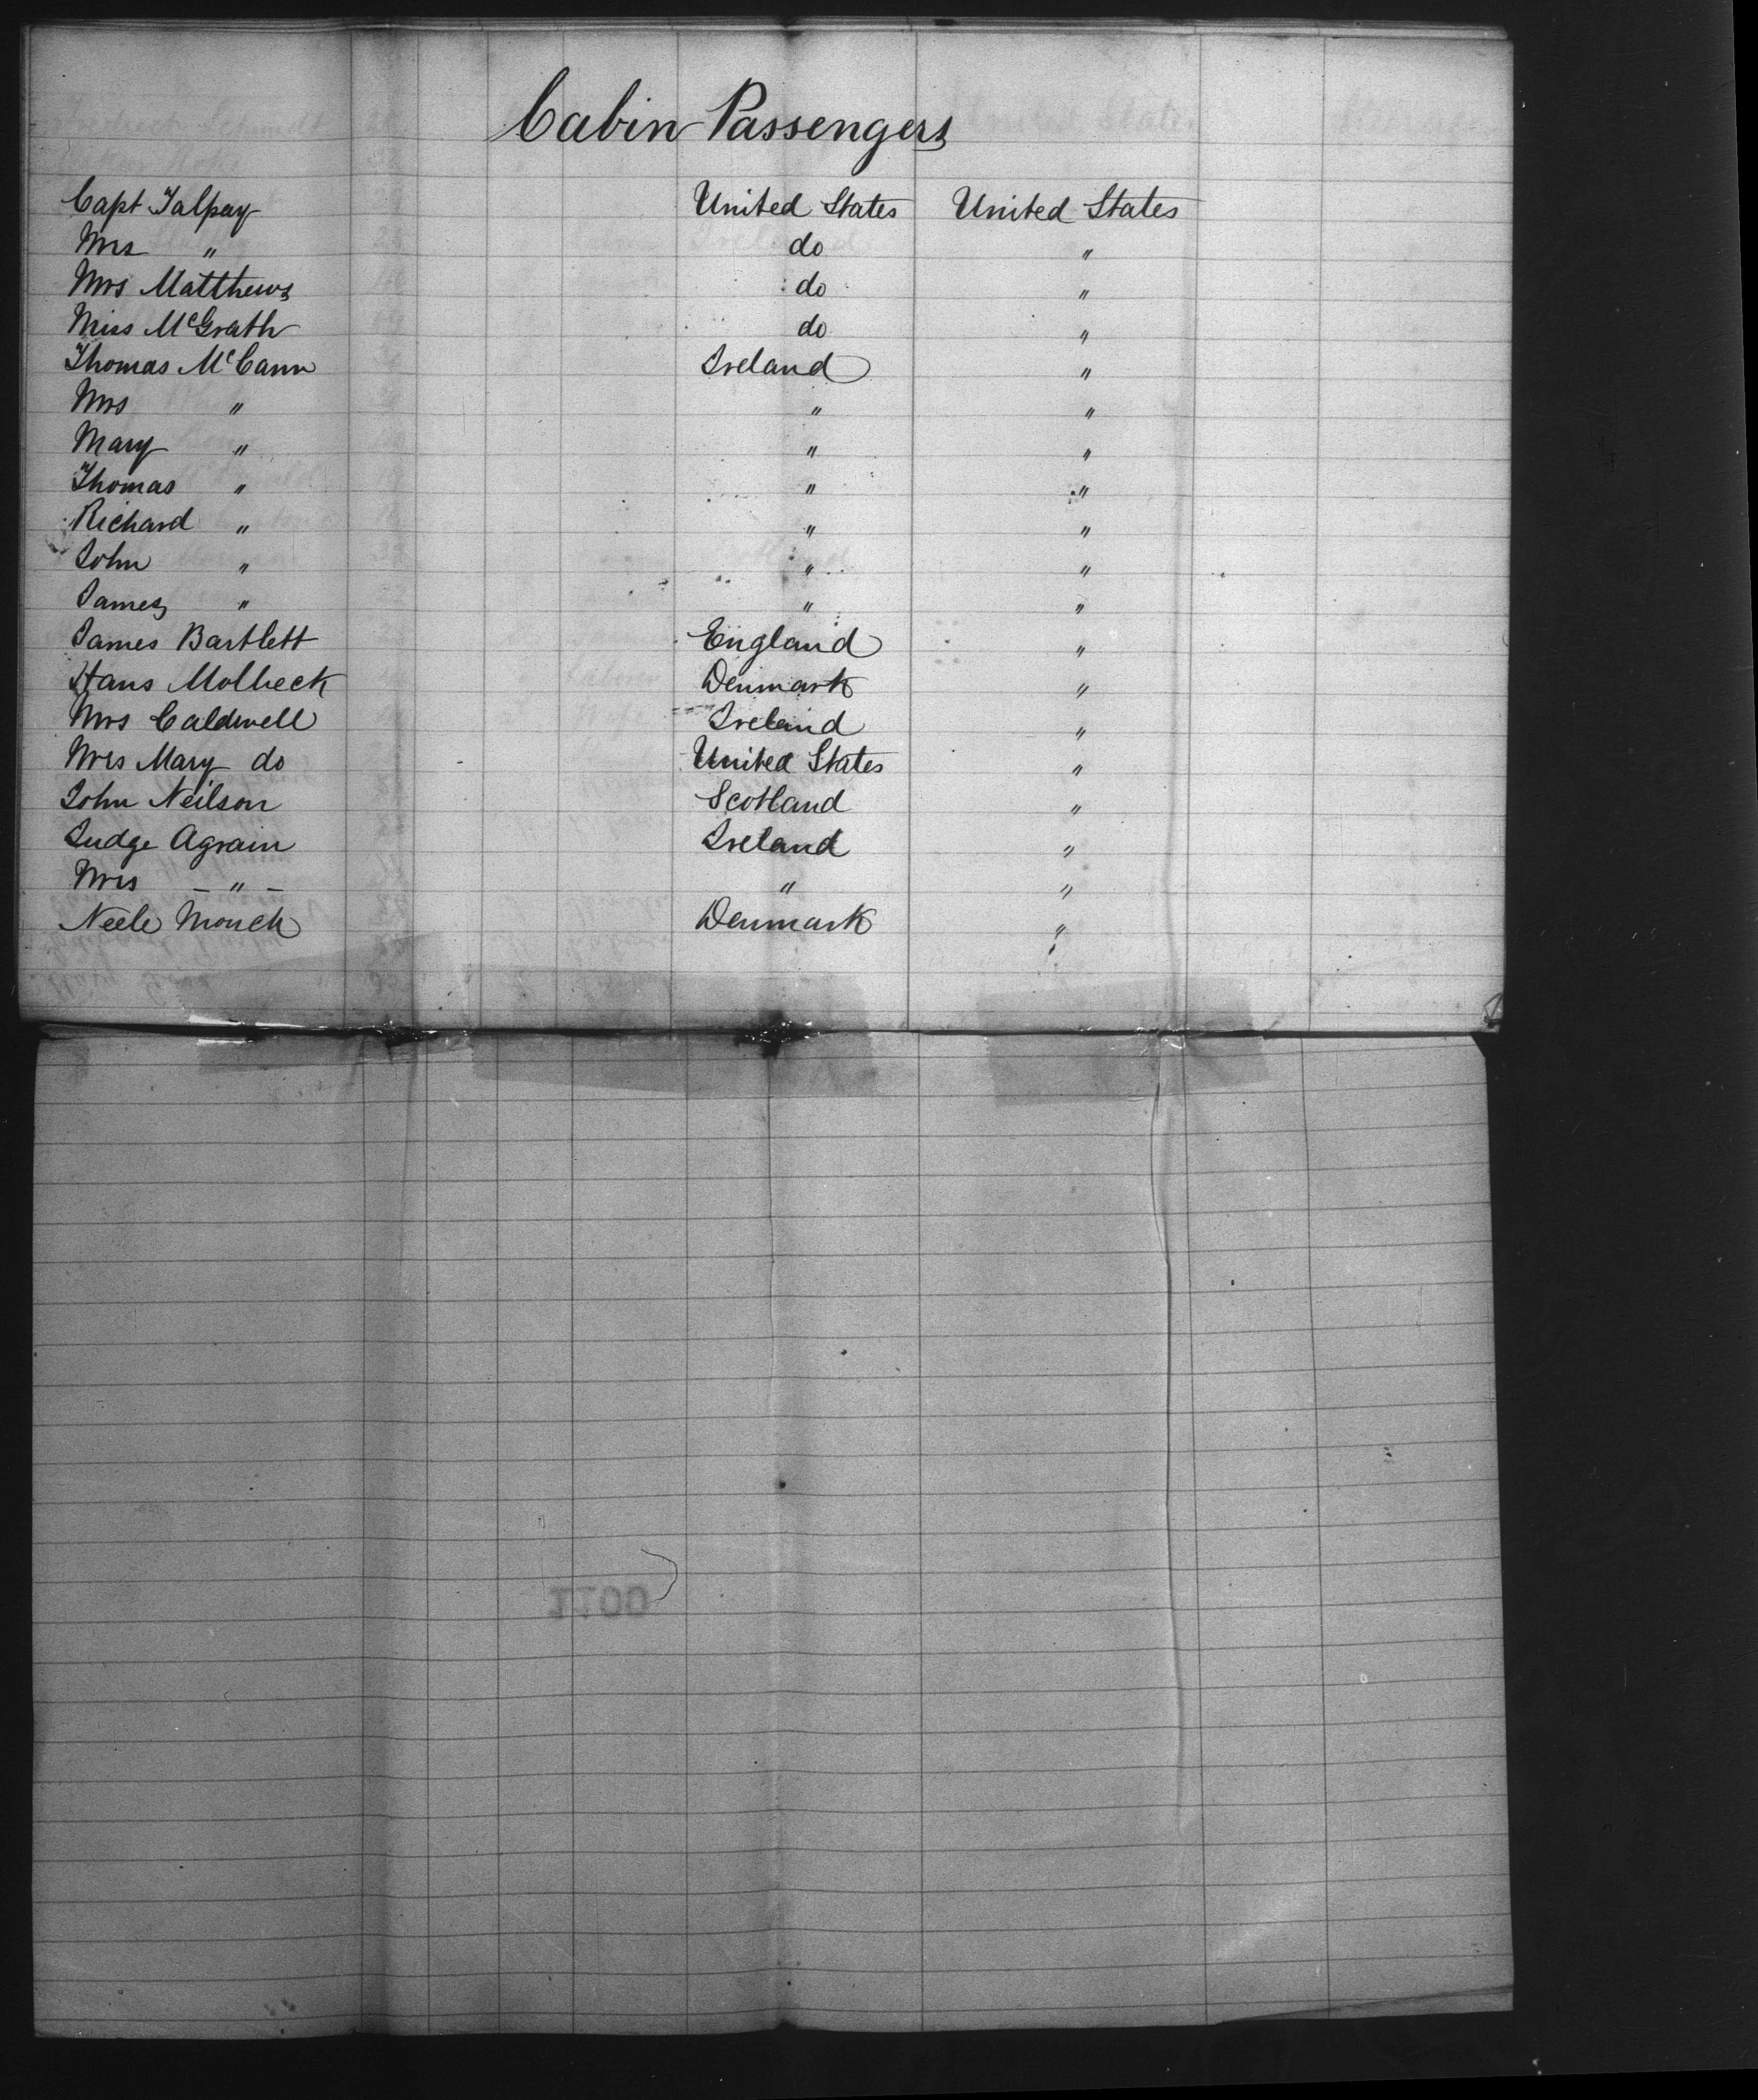 Cabin Passengers
Capt Talpay United States United States
Mrs " do "
Mrs Matthews do "
Miss McGrath do "
Thomas McCann Ireland "
Mrs " " "
Mary " " "
Thomas " " "
Richard " " "
John " " "
James " " "
James Bartlett England "
Hans Molbeck Denmark "
Mrs Caldwell Ireland "
Mrs Mary do United States "
John Neilson Scotland "
Judge Agrain Ireland "
Mrs – " – " "
Neele Monck Denmark "
1100